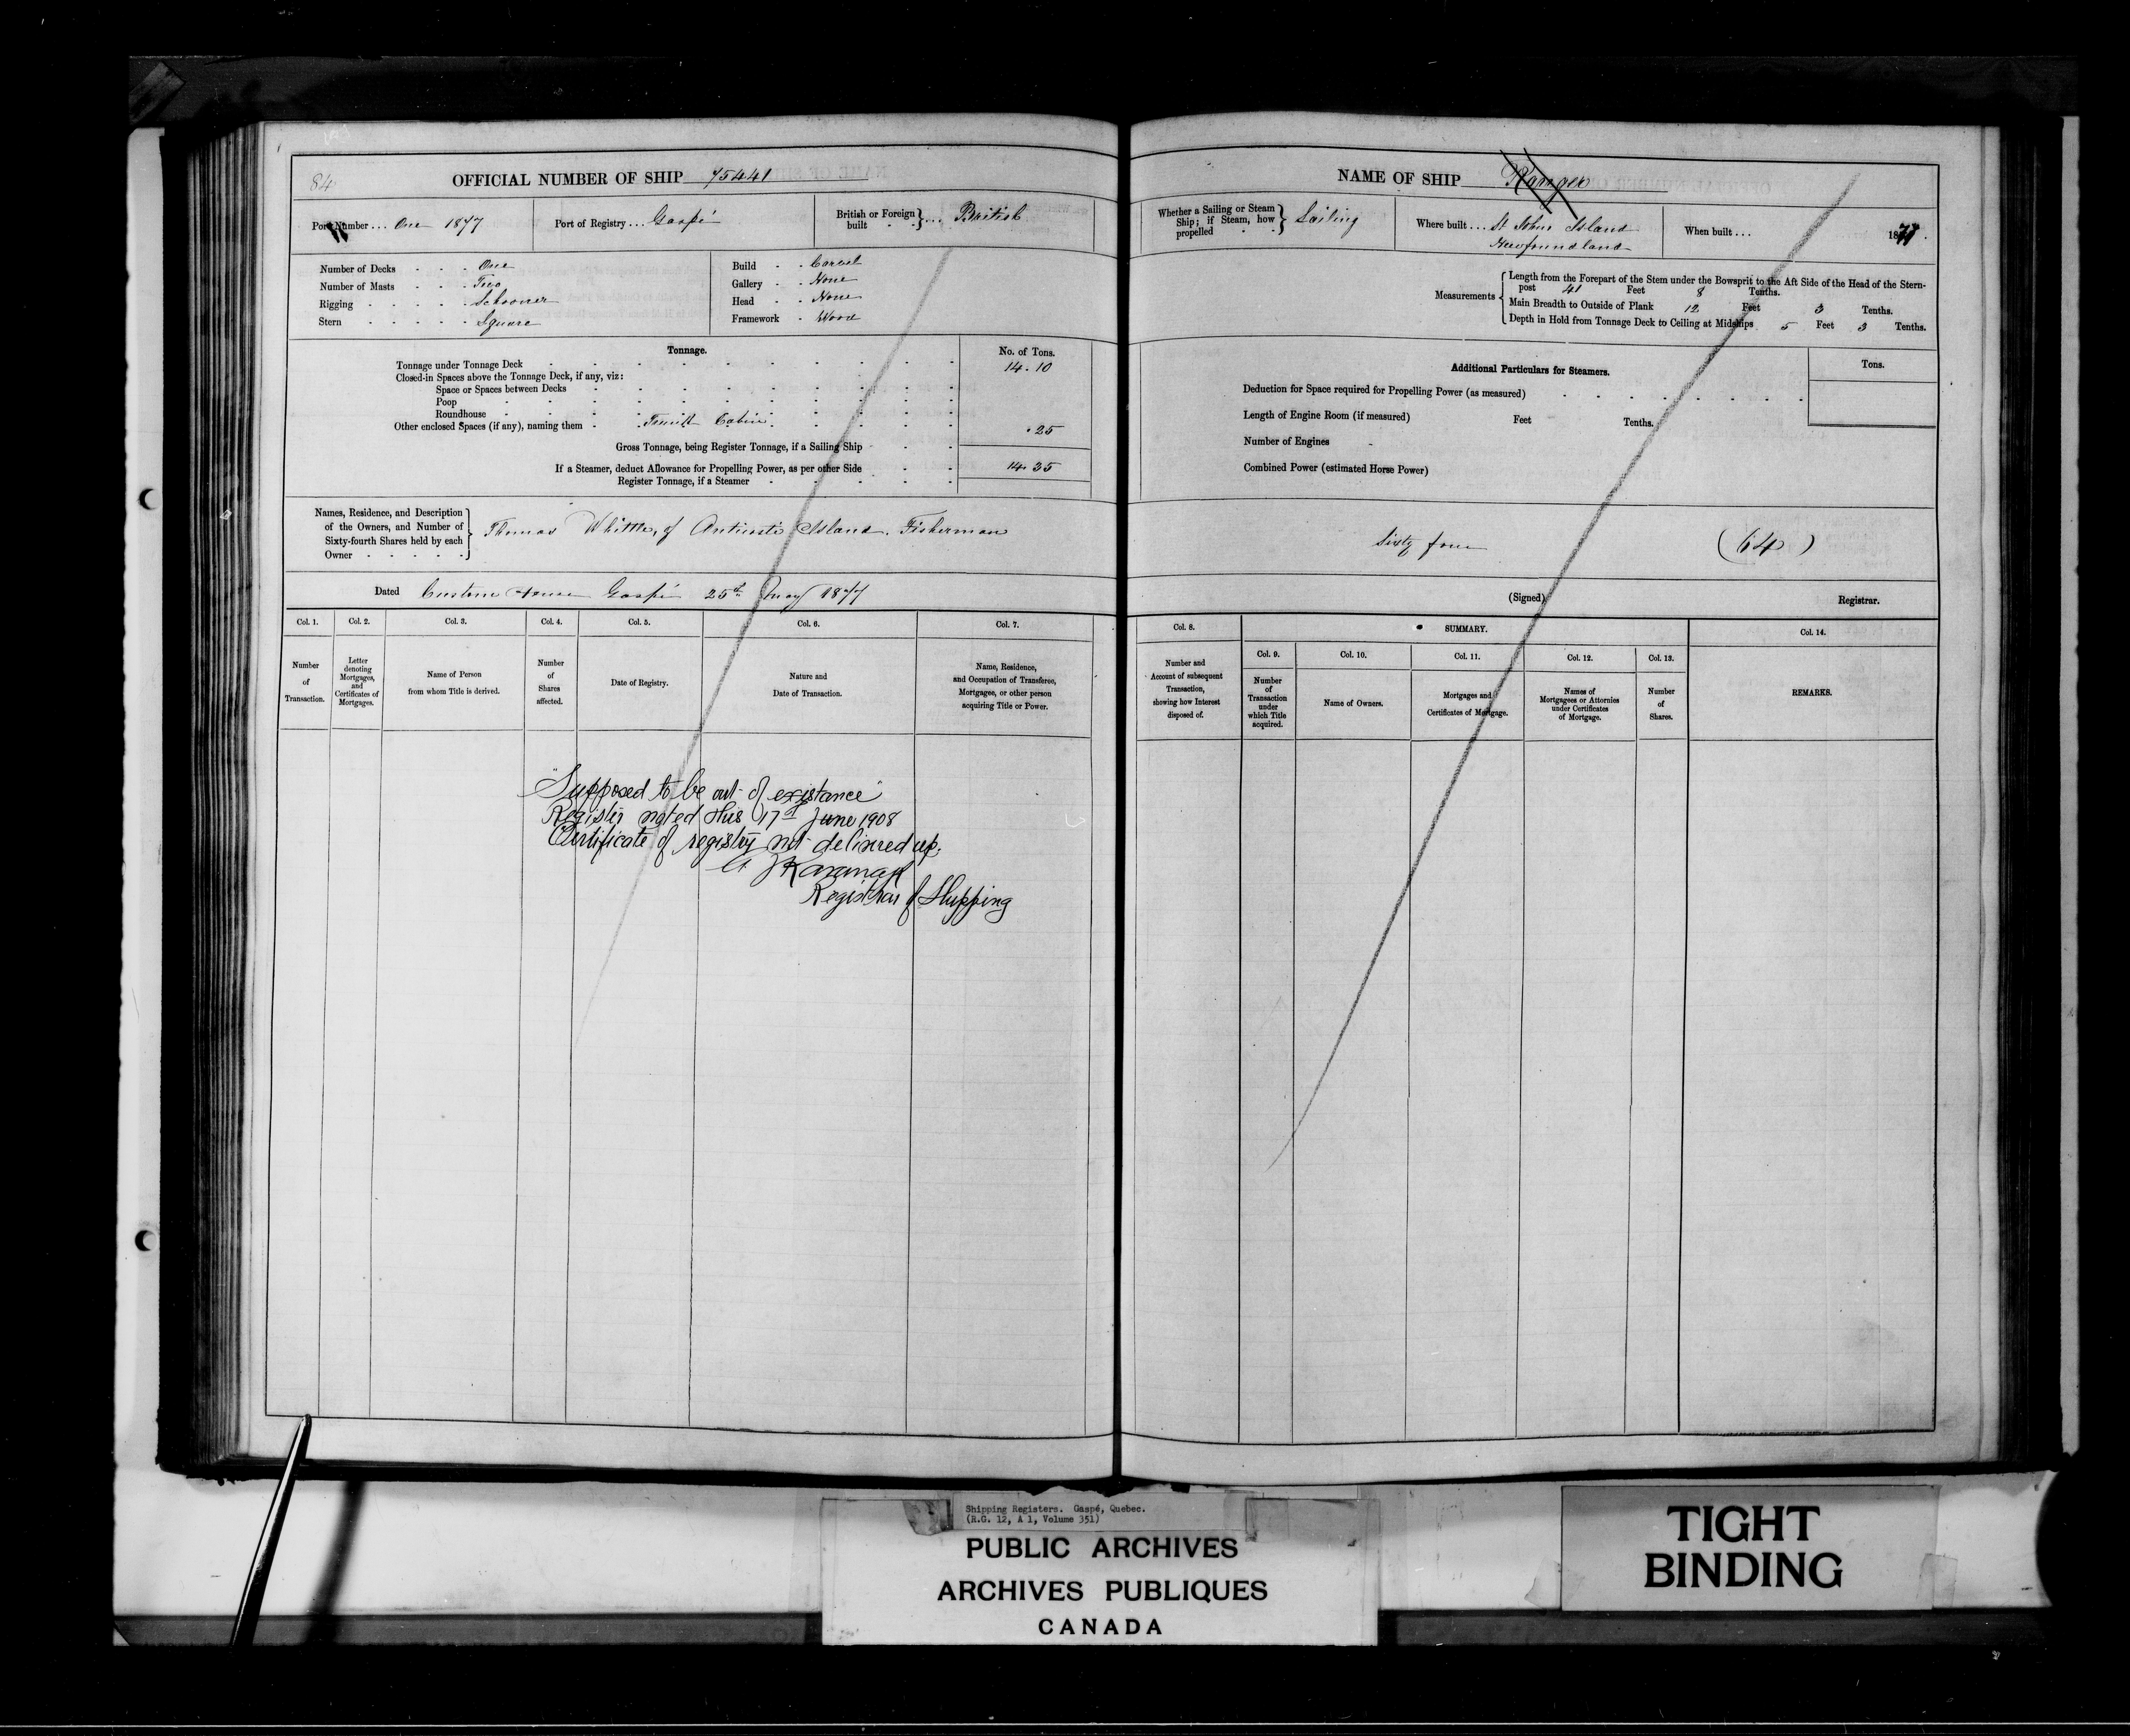 84
OFFICIAL NUMBER OF SHIP 75441
Port Number ... One 1877
Port of Registry ... Gaspé
British or Foreign built } ... British
Number of Decks - - - One
Number of Masts - - - Two
Rigging - - - - - Schooner
Stern - - - - - Square
Build - - Carvel
Gallery - - None
Head - - None
Framework - Wood
Tonnage.
No. of Tons.
Tonnage under Tonnage Deck 14.10
Closed-in Spaces above the Tonnage Deck, if any, viz:
Space or Spaces between Decks
Poop
Roundhouse
Other enclosed Spaces (if any), naming them - Cabin .25
Gross Tonnage, being Register Tonnage, if a Sailing Ship
If a Steamer, deduct Allowance for Propelling Power, as per other Side 14.35
Register Tonnage, if a Steamer
Names, Residence, and Description
of the Owners, and Number of
Sixty-fourth Shares held by each
Owner - - - - -
Thomas Whittle, of Anticosti Island. Fisherman
Dated Custom House Gaspé 25th May 1877
Col. 1. Col. 2. Col. 3. Col. 4. Col. 5. Col. 6. Col. 7.
Number of Transaction.
Letter denoting Mortgages, and Certificates of Mortgages.
Name of Person from whom Title is derived.
Number of Shares affected.
Date of Registry.
Nature and Date of Transaction.
Name, Residence, and Occupation of Transferee, Mortgagee, or other person acquiring Title or Power.
"Supposed to be out of existance"
Register noted this 17th June 1908
Certificate of registry not delivered up.
Kavanagh
Registrar of Shipping
NAME OF SHIP Ranger
Whether a Sailing or Steam Ship; if Steam, how propelled } Sailing
Where built ... St Johns Island
Newfoundland
When built ... 18
Measurements
Length from the Forepart of the Stem under the Bowsprit to the Aft Side of the Head of the Stern-
post 41 Feet 8 Tenths.
Main Breadth to Outside of Plank 12 Feet 3 Tenths.
Depth in Hold from Tonnage Deck to Ceiling at Midships 5 Feet 3 Tenths.
Additional Particulars for Steamers.
Tons.
Deduction for Space required for Propelling Power (as measured)
Length of Engine Room (if measured) Feet Tenths.
Number of Engines
Combined Power (estimated Horse Power)
Sixty four (64)
(Signed) Registrar.
Col. 8. SUMMARY. Col. 14.
Col. 9. Col. 10. Col. 11. Col. 12. Col. 13.
Number and Account of subsequent Transaction, showing how Interest disposed of.
Number of Transaction under which Title acquired.
Name of Owners.
Mortgages and Certificates of Mortgage.
Names of Mortgagees or Attornies under Certificates of Mortgage.
Number of Shares.
REMARKS.
Shipping Registers. Gaspé, Quebec.
(R.G. 12, A 1, Volume 351)
PUBLIC ARCHIVES
ARCHIVES PUBLIQUES
CANADA
TIGHT
BINDING